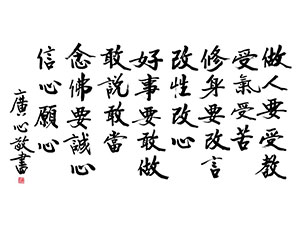 做人要受教
受氣受苦
修身要改言
改性改心
好事要敢做
敢說敢當
念佛要誠心
信心願心
廣心敬書